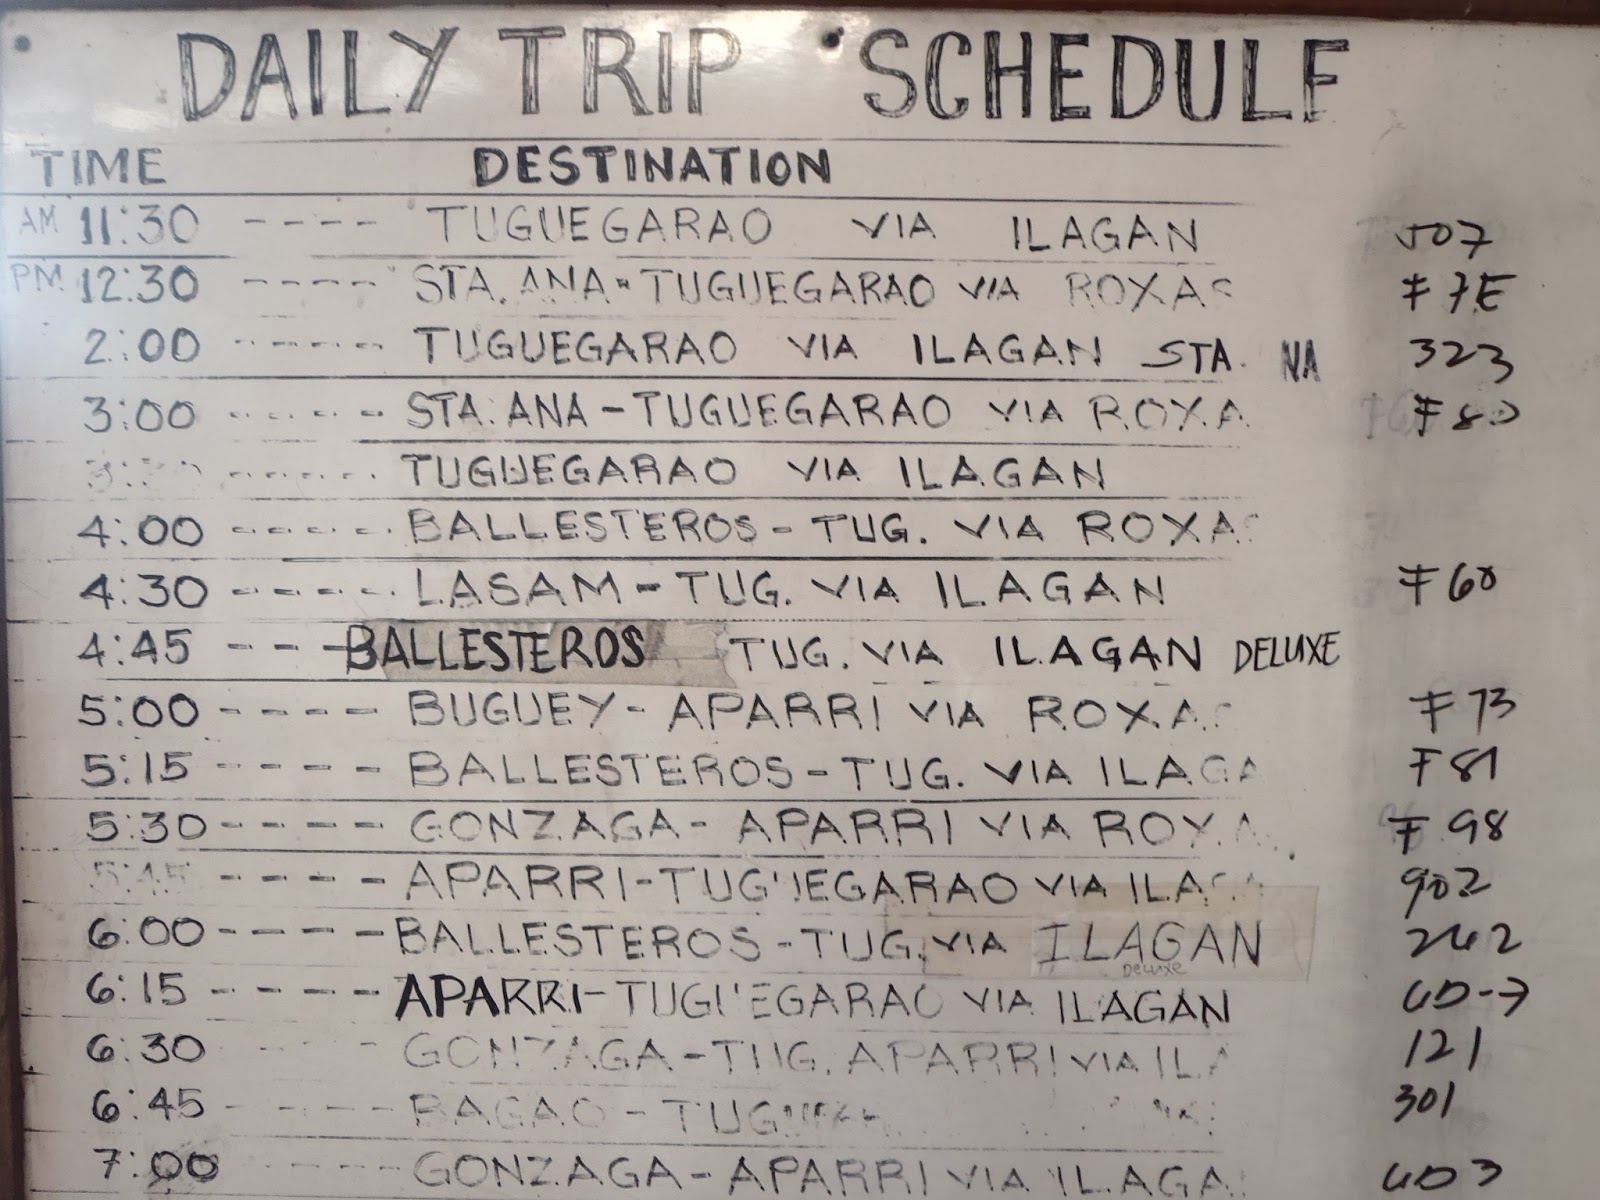 DAILY TRIP SCHEDULE
TIME DESTINATION
AM 11:30 ---- TUGUEGARAO VIA ILAGAN 507
PM 12:30 ---- STA. ANA-TUGUEGARAO VIA ROXAS F7E
2:00 ----- TUGUEGARAO VIA ILAGAN STA. NA 323
3:00 ----- STA. ANA-TUGUEGARAO VIA ROXA F80
3:30 ----- TUGUEGARAO VIA ILAGAN
4:00 ----- BALLESTEROS - TUG. VIA ROXA
4:30 ----- LASAM - TUG. VIA ILAGAN F60
4:45 --- BALLESTEROS TUG. VIA ILAGAN DELUXE
5:00 ---- BUGUEY - APARRI VIA ROXA F73
5:15 ---- BALLESTEROS - TUG. VIA ILAGA F81
5:30 ---- GONZAGA - APARRI VIA ROXA F98
5:45 ---- APARRI-TUGUEGARAO VIA ILAGA 902
6:00 ----- BALLESTEROS - TUG. VIA ILAGAN 242
DELUXE
6:15 ----- APARRI-TUGUEGARAO VIA ILAGAN
6:30 GONZAGA - TUG. APARRI VIA ILA 121
6:45 ----- BAGAO - 301
7:00 ----- GONZAGA - APARRI VIA ILAGA